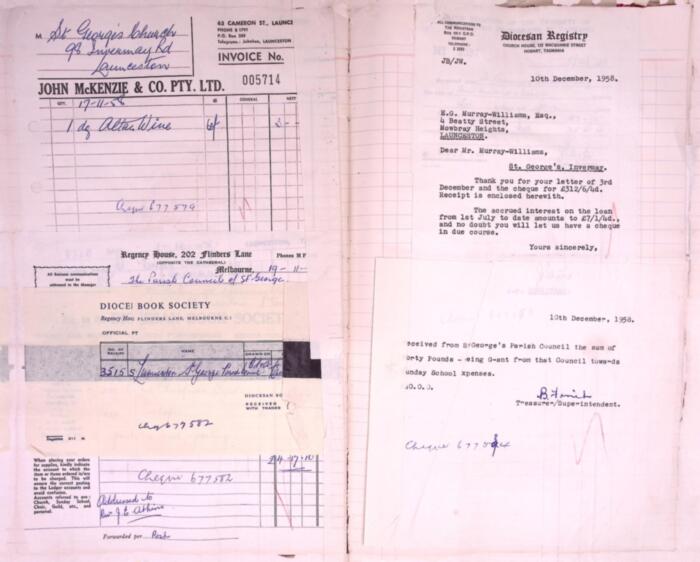 M. St. George's Church
98 Invermay Rd
Launceston
63 CAMERON ST., LAUNCE
PHONE
P.O. Box
Telegrams: LAUNCESTON
INVOICE No.
005714
JOHN McKENZIE & CO. PTY. LTD.
QTY. 17-11-58 @ GENERAL NETT
1 dz Altar Wine
Cheque 677579
Regency House, 202 Flinders Lane
(OPPOSITE THE CATHEDRAL)
Phones M F
Melbourne, 19-11-
All business communications
must be
addressed to the Manager
The Parish Council of St George
DIOCE BOOK SOCIETY
Regency Hou FLINDERS LANE, MELBOURNE C.1
OFFICIAL
NO. OF
RECEIPT NAME DRAWN ON
3515 S Launceston St George
DIOCESAN BO
RECEIVED
WITH THANKS
chq 677582
When placing your orders
for supplies, kindly indicate
the account to which the
item or items ordered is/are
to be charged. This will
ensure the correct posting
to the Ledger accounts and
avoid confusion.
Accounts referred to are:
Church, Sunday School,
Choir, Guild, etc., and
personal.
Cheque 677582
Addressed to
Rev J. L. Atkins
Forwarded per Post
ALL COMMUNICATIONS TO
THE REGISTRAR
BOX G.P.O.
HOBART
TELEPHONE:
Diocesan Registry
CHURCH HOUSE, 125 MACQUARIE STREET
HOBART, TASMANIA
JB/JW.
10th December, 1958.
E.G. Murray-Williams, Esq.,
4 Beatty Street,
Mowbray Heights,
LAUNCESTON.
Dear Mr. Murray-Williams,
St. George's, Invermay.
Thank you for your letter of 3rd
December and the cheque for £312/6/4d.
Receipt is enclosed herewith.
The accrued interest on the loan
from 1st July to date amounts to £7/1/4d.,
and no doubt you will let us have a cheque
in due course.
Yours sincerely,
10th December, 1958.
eceived from St George's Parish Council the sum of
orty Pounds - eing G ant from that Council towa ds
unday School xpenses.
0.0.0.
Treasurer/Supe intendent.
Cheque 677584